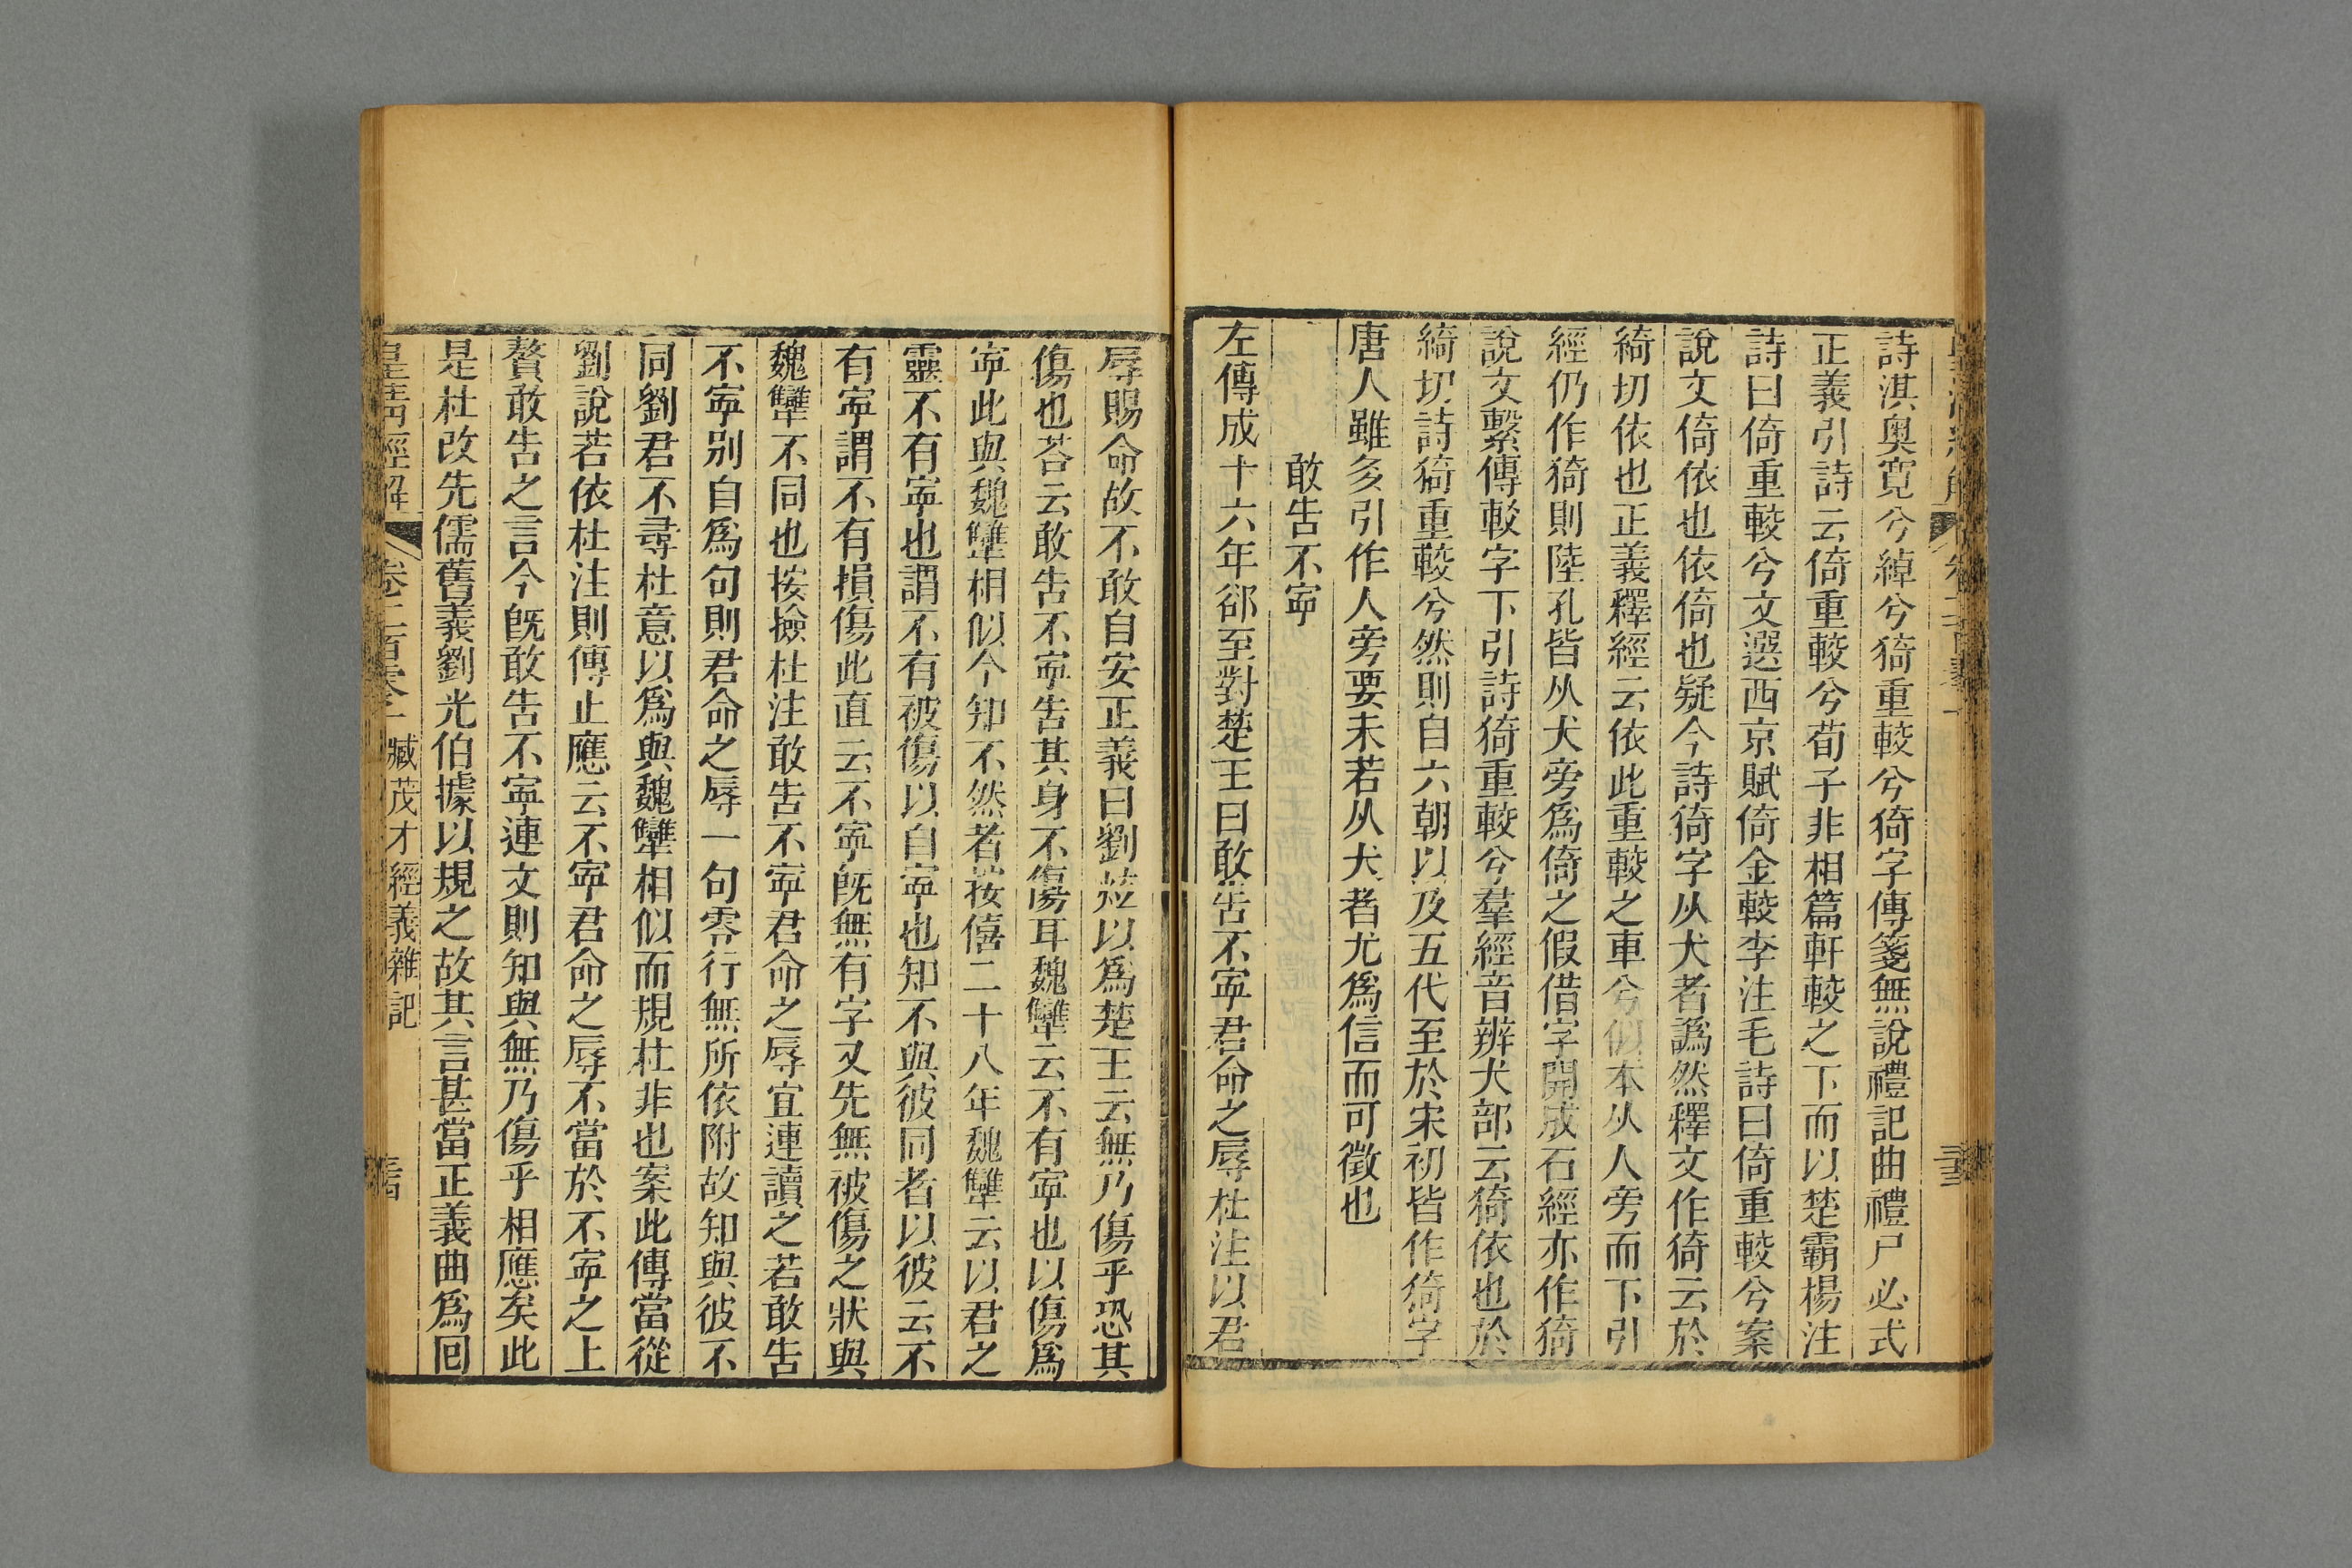 詩淇奧寛兮綽兮猗重較兮猗字傳箋無說禮記曲禮尸必式
正義引詩云倚重較兮荀子非相篇軒較之下而以楚霸楊注
詩曰倚重較兮文選西京賦倚金較李注毛詩曰倚重較兮案
說文倚依也依倚也疑今詩猗字从犬者譌然釋文作猗云於
綺切依也正義釋經云依此重較之車兮似本从人旁而下引
經仍作猗則陸孔皆从犬旁爲倚之假借字開成石經亦作猗
說文繫傳較字下引詩猗重較兮羣經音辨犬部云猗依也於
綺切詩猗重較兮然則自六朝以及五代至於宋初皆作猗字
唐人雖多引作人旁要未若从犬者尤爲信而可徵也
敢告不寍
左傳成十六年郤至對楚王曰敢告不寍君命之辱杜注以君
辱賜命故不敢自安正義曰劉炫以爲楚王云無乃傷乎恐其
傷也荅云敢告不寍告其身不傷耳魏犨云不有寍也以傷爲
寍此與魏犨相似今知不然者按僖二十八年魏犨云以君之
靈不有寍也謂不有被傷以自寍也知不與彼同者以彼云不
有寍謂不有損傷此直云不寍旣無有字又先無被傷之狀與
魏犨不同也按撿杜注敢告不寍君命之辱宜連讀之若敢告
不寍别自爲句則君命之辱一句零行無所依附故知與彼不
同劉君不尋杜意以爲與魏犨相似而規杜非也案此傳當從
劉說若依杜注則傳止應云不寍君命之辱不當於不寍之上
贅敢告之言今旣敢告不寍連文則知與無乃傷乎相應矣此
是杜改先儒舊義劉光伯據以規之故其言甚當正義曲爲囘
皇淸經解 卷二百 臧茂才經義雜記